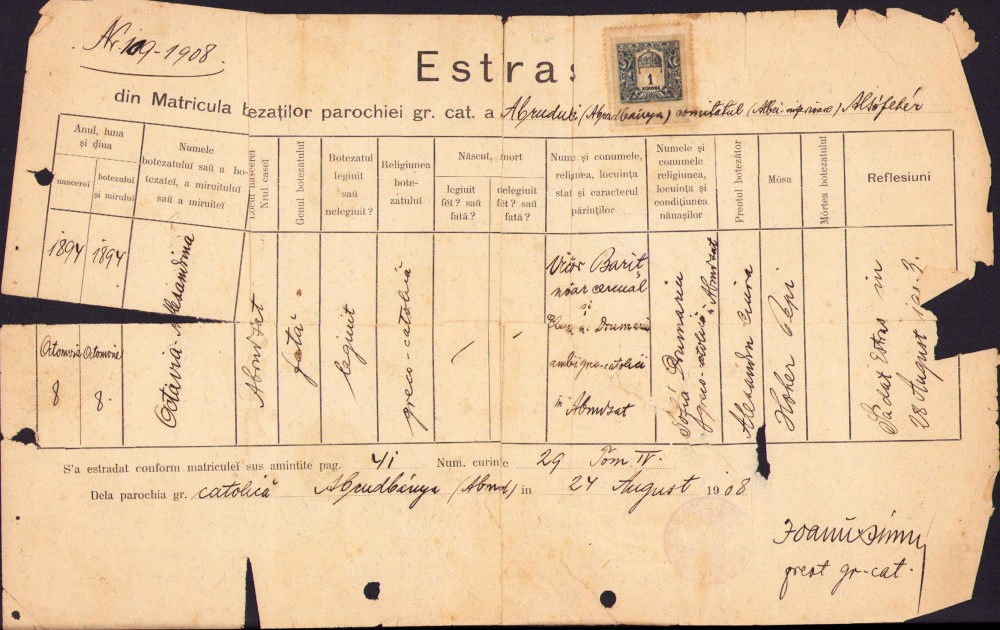 Nr. 109-1908.
Estras
1
KORONA
din Matricula botezaților parochiei gr. cat. a Abrudului (Abrudbánya) comitatul (Albei inferioare) Alsófehér
Anul, luna și diua
nascerei
botezului și mirului
Numele botezatului saŭ a botezatei, a miruitului saŭ a miruitei
Locul nascerei Nrul casei
Genul botezatului
Botezatul legiuit saŭ nelegiuit?
Religiunea botezatului
Născut, mort
legiuit fét? saŭ fată?
nelegiuit fét? saŭ fată?
Nume și conumele, religiunea, locuința stat și caracterul părinților
Numele și conumele religiunea, locuința și condițiunea nănașilor
Preotul botezător
Móșa
Mórtea botezatului
Reflesiuni
1894
1894
Octomvrie
Octomvrie
8
8.
Octavia-Alesandrina
Abrudsat
fată
legiuit
greco-catolică
Victor Barit
și
ambi greco-catolici
în Abrudsat
greco-catolică
Abrudsat
Alesandru Ciura
Hoher Pepi
S'a dat Estras in
28 August
S'a estradat conform matriculei sus amintite pag. 41 Num. curinte 29 Tom IV.
Dela parochia gr. catolică Abrudbánya (Abrud) in 24 August 1908
preot gr-cat.